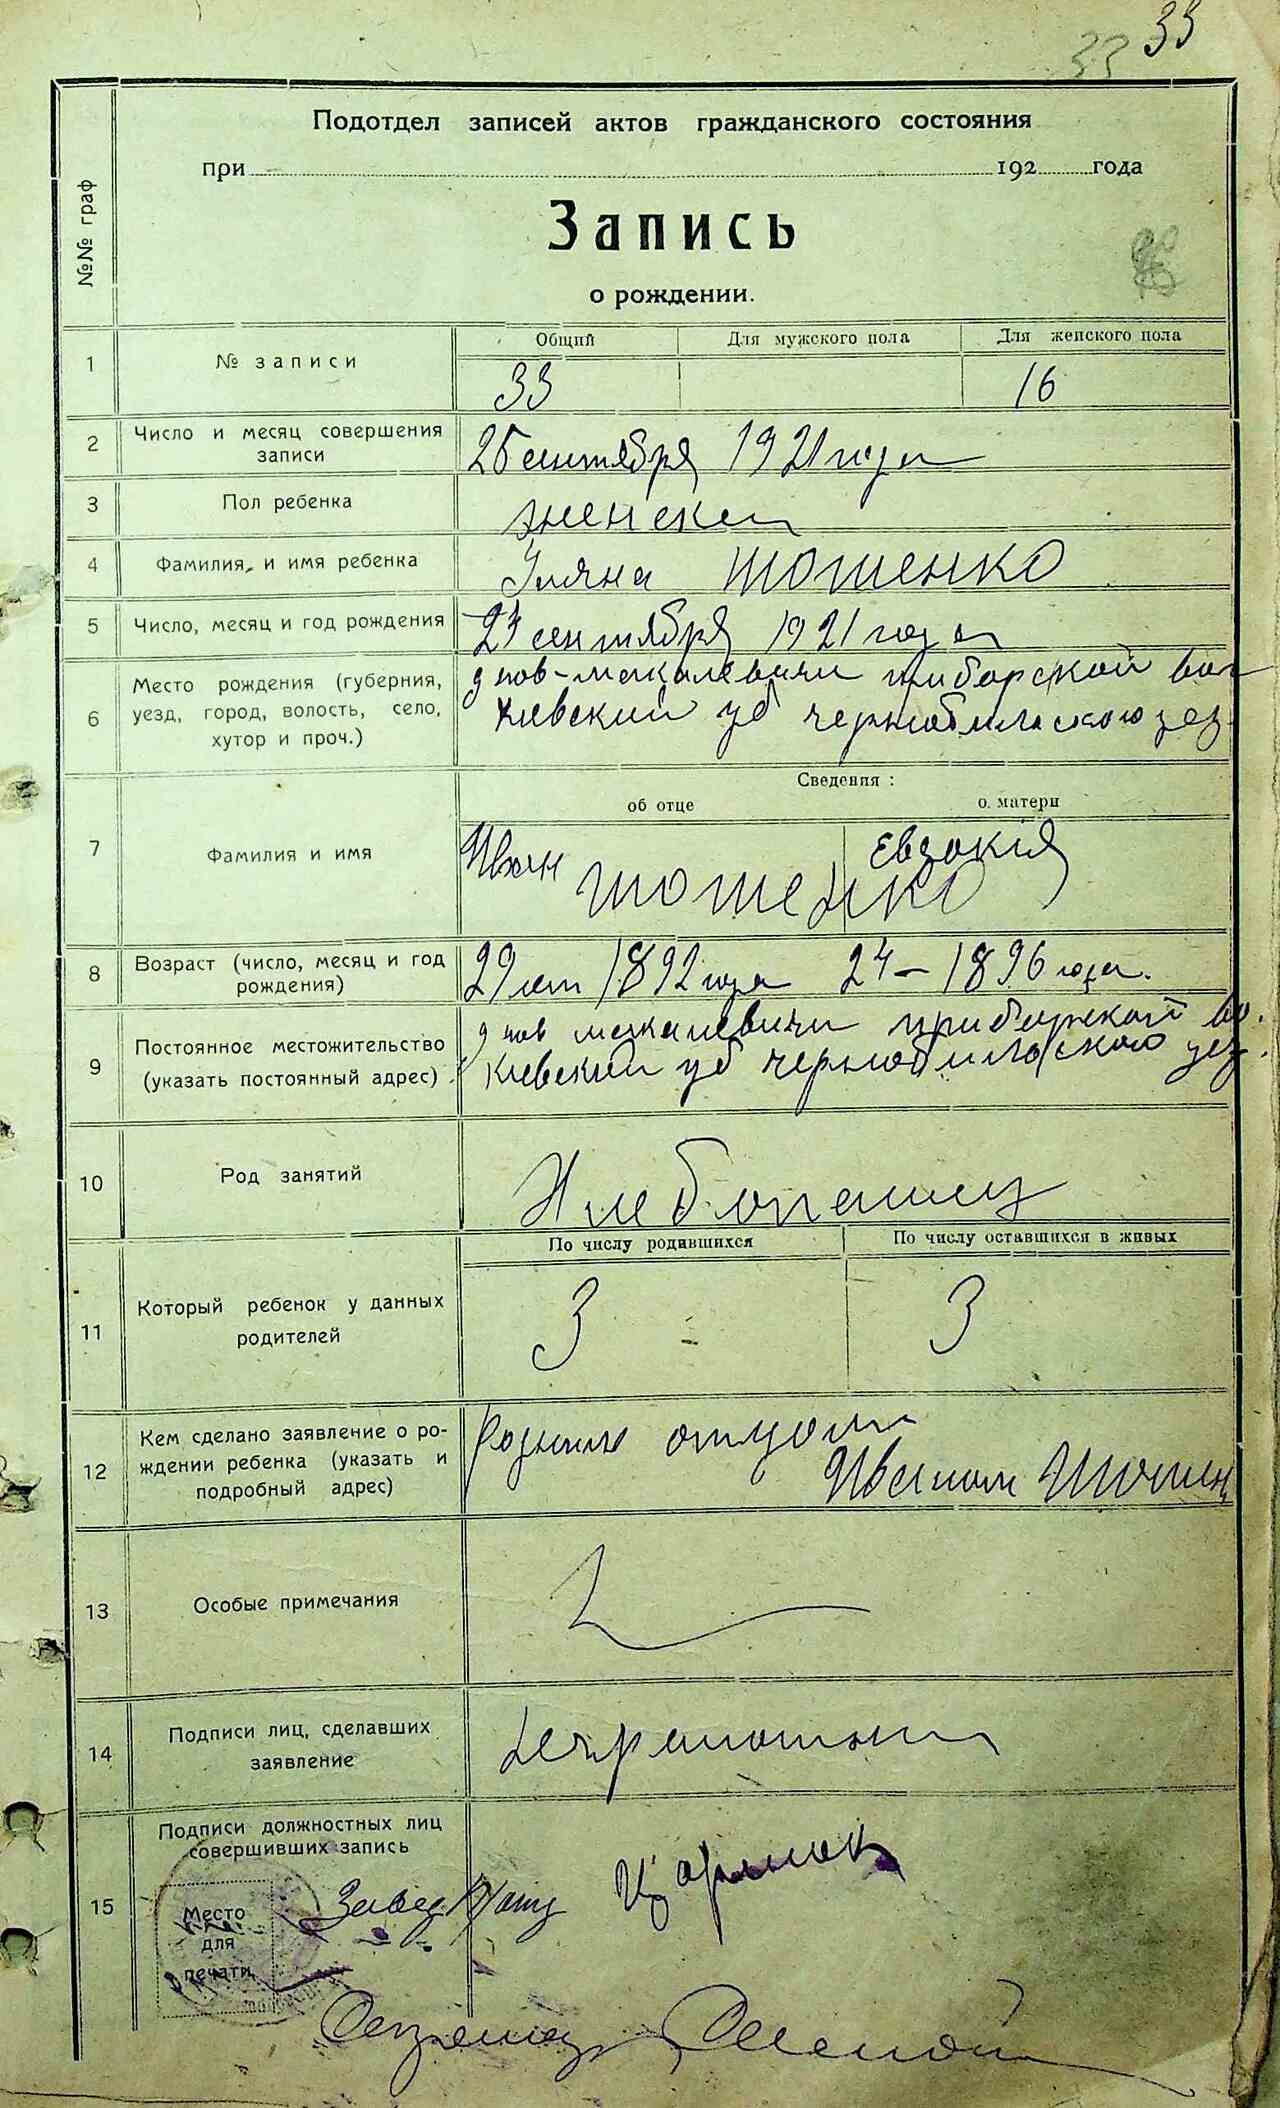 33
33
Подотдел записей актов гражданского состояния
при 192 года
Запись
о рождении.
№№ граф
Общий Для мужского пола Для женского пола
1 № записи 33 16
2 Число и месяц совершения записи
25 сентября 1921 года
3 Пол ребенка женскаи
4 Фамилия, и имя ребенка Уляна Тошенко
5 Число, месяц и год рождения 23 сентября 1921 года
6 Место рождения (губерния,
уезд, город, волость, село,
хутор и проч.)
д нов-макалевичи приборской вол
Киевский уб чернобилского уез
Сведения :
об отце о матери
7 Фамилия и имя Иван Евдокія
Тошенко
8 Возраст (число, месяц и год
рождения)
29 лет 1892 года 24 - 1896 года.
9 Постоянное местожительство
(указать постоянный адрес)
д нов макалевичи приборской во.
Киевский уб чернобилского уез.
10 Род занятий Хлебопашец
По числу родившихся По числу оставшихся в живых
11 Который ребенок у данных
родителей
3 3
12 Кем сделано заявление о ро-
ждении ребенка (указать и
подробный адрес)
Родним отцом
Иваном Тошен
13 Особые примечания
14 Подписи лиц, сделавших
заявление
неграмотни
15 Подписи должностных лиц
совершивших запись
Место
для
печати
Завед